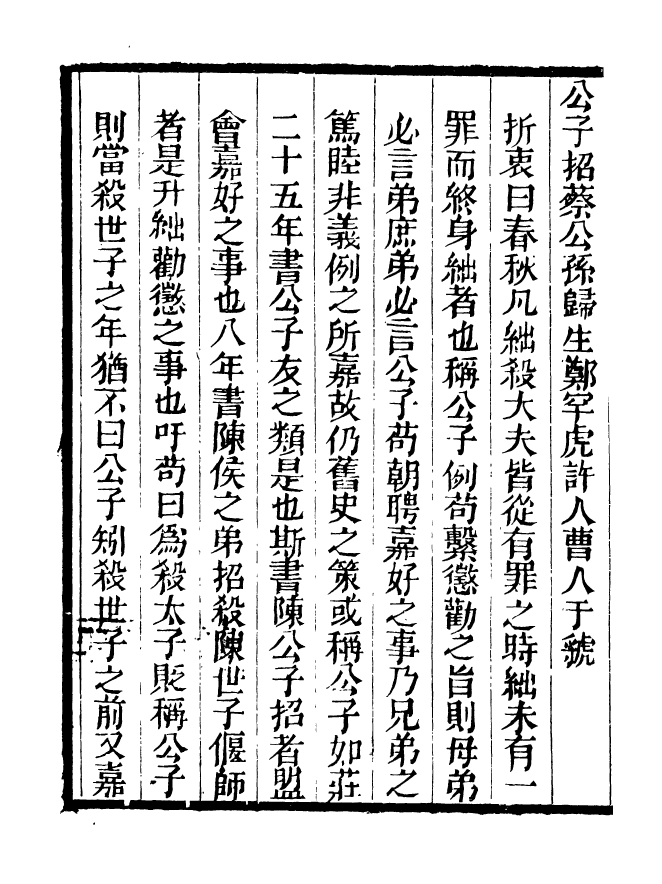 公子招蔡公孫歸生鄭罕虎許人曹人于虢
折衷曰春秋凡絀殺大夫皆從有罪之時絀未有一
罪而終身絀者也稱公子例茍繫懲勸之旨則母弟
必言弟庶弟必言公子茍朝聘嘉好之事乃兄弟之
篤睦非義例之所嘉故仍舊史之策或稱公子如莊
二十五年書公子友之類是也斯書陳公子招者盟
會嘉好之事也八年書陳侯之弟招殺陳世子偃師
者是升絀勸懲之事也吁茍曰為殺太子貶稱公子
則當殺世子之年猶不曰公子矧殺世子之前又嘉